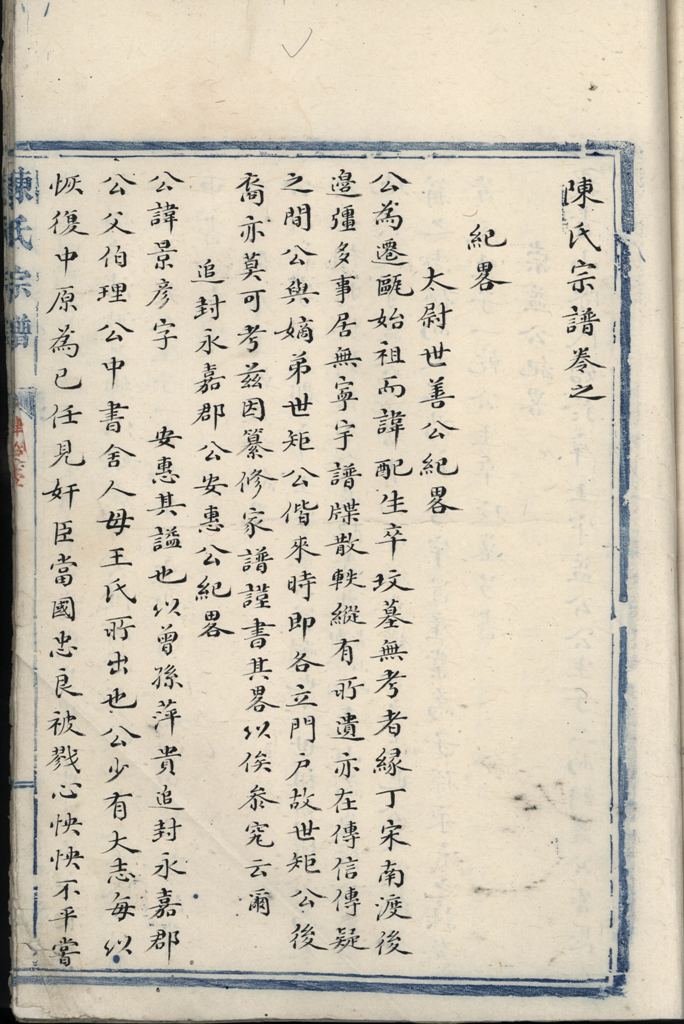 陳氏宗譜卷之
紀畧
太尉世善公紀畧
公為遷甌始祖而諱配生卒坟墓無考者緣丁宋南渡後
邊彊多事居無寧宇譜牒散軼縱有所遺亦在傳信傳疑
之間公與嫡弟世矩公偕來時即各立門戶故世矩公後
裔亦莫可考茲因纂修家譜謹書其畧以俟叅究云爾
追封永嘉郡公安惠公紀畧
公諱景彥字　安惠其謚也以曾孫萍貴追封永嘉郡
公父伯理公中書舍人母王氏所出也公少有大志每以
恢復中原為已任見奸臣當國忠良被戮心怏怏不平嘗
陳氏宗譜